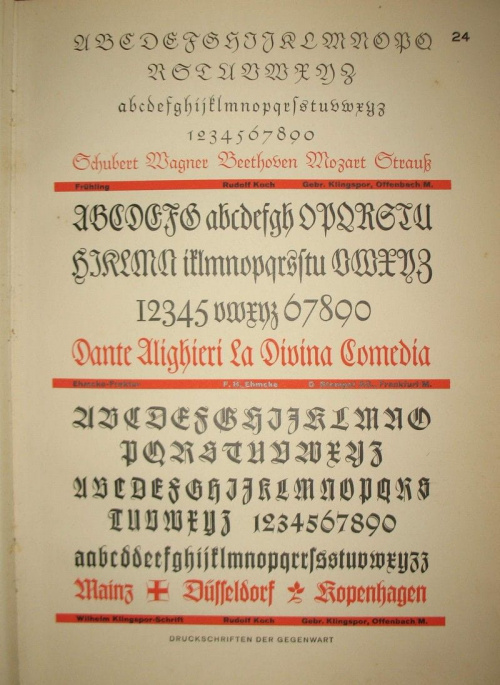 24
A B C D E F G H I J K L M N O P Q
R S T U V W X Y Z
abcdefghijklmnopqrſstuvwxyz
1234567890
Schubert Wagner Beethoven Mozart Strauß
Frühling Rudolf Koch Gebr. Klingspor, Offenbach M.
ABCDEFG abcdefgh OPQRSTU
HJKLMN iklmnopqrsſtu VWXYZ
12345 vwxyz 67890
Dante Alighieri La Divina Comedia
F. H. Ehmcke Frankfurt M.
A B C D E F G H I J K L M N O
P Q R S T U V W X Y Z
A B C D E F G H I J K L M N O P Q R S
T U V W X Y Z 1234567890
aabcddefghijklmnopqrrſsstuvwxyzz
Mainz Düſſeldorf Kopenhagen
Wilhelm Klingspor-Schrift Rudolf Koch Gebr. Klingspor, Offenbach M.
DRUCKSCHRIFTEN DER GEGENWART